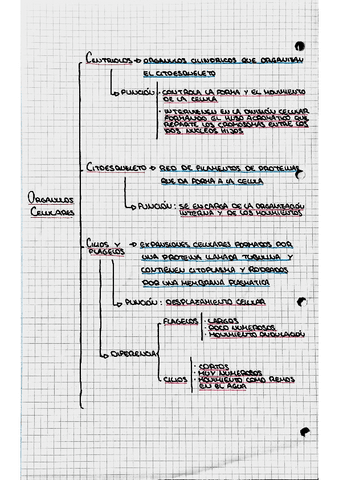 CENTRIOLOS → ORGANULOS CILINDRICOS QUE ORGANIZAN
EL CITOESQUELETO
FUNCIÓN: · CONTROLA LA FORMA Y EL MOVIMIENTO
DE LA CELULA
· INTERVIENEN EN LA DIVISIÓN CELULAR
FORMANDO EL HUSO ACROMÁTICO QUE
REPARTE LOS CROMOSOMAS ENTRE LOS
DOS NUCLEOS HIJOS
CITOESQUELETO → RED DE FILAMENTOS DE PROTEINAS
QUE DA FORMA A LA CELULA
FUNCIÓN: SE ENCARGA DE LA ORGANIZACIÓN
INTERNA Y DE LOS MOVIMIENTOS
ORGANULOS
CELULARES
CILIOS Y → EXPANSIONES CELULARES FORMADOS POR
FLAGELOS
UNA PROTEINA LLAMADA TUBULINA Y
CONTIENEN CITOPLASMA Y RODEADOS
POR UNA MEMBRANA PLASMATICA
FUNCIÓN: DESPLAZAMIENTO CELULAR
FLAGELOS · LARGOS
· POCO NUMEROSOS
· MOVIMIENTO ONDULACIÓN
DIFERENCIA
CILIOS · CORTOS
· MUY NUMEROSOS
· MOVIMIENTO COMO REMOS
EN EL AGUA